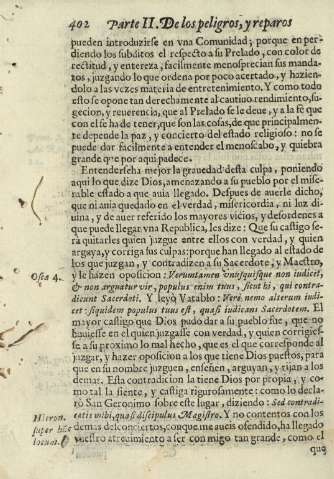 402 Parte II. De los peligros, y reparos
pueden introduzirse en vna Comunidad; porque en per-
diendo los subditos el respecto a su Prelado, con color de
rectitud, y entereza, facilmente menosprecian sus manda-
tos, juzgando lo que ordena por poco acertado, y hazien-
dolo a las vezes materia de entretenimiento. Y como todo
esto se opone tan derechamente al cautiuo rendimiento, su-
gecion, y reuerencia, que al Prelado se le deue, y a la fè que
con el se ha de tener, que son las cosas, de que principalmen-
te depende la paz, y concierto del estado religioso: no se
puede dar facilmente a entender el menoscabo, y quiebra
grande que por aqui padece.
Entenderseha mejor la grauedad desta culpa, poniendo
aqui lo que dize Dios, amenazando a su pueblo por el mise-
rable estado a que auia llegado. Despues de auerle dicho,
que ni auia quedado en el verdad, misericordia, ni luz di-
uina, y de auer referido los mayores vicios, y desordenes a
que puede llegar vna Republica, les dize: Que su castigo se-
rà quitarles quien juzgue entre ellos con verdad, y quien
arguya, y corriga sus culpas: porque han llegado al estado de
los que juzgan, y contradizen a su Sacerdote, y Maestro,
Osea 4. y le hazen oposicion: Veruntamen vnusquisque non iudicet,
& non arguatur vir, populus enim tuus, sicut hi, qui contra-
dicunt Sacerdoti. Y leyò Vatablo: Verè nemo alterum iudi-
cet: siquidem populus tuus est, quasi iudicans Sacerdotem. El
mayor castigo que Dios pudo dar a su pueblo fue, que no
huuiesse en el quien juzgasse con verdad, y quien corrigies-
se a su proximo lo mal hecho, que es el que corresponde al
juzgar, y hazer oposicion a los que tiene Dios puestos, para
que en su nombre juzguen, enseñen, arguyan, y rijan a los
demas. Esta contradicion la tiene Dios por propia, y co-
mo tal la siente, y castiga rigurosamente: como lo decla-
rò San Geronimo sobre este lugar, diziendo: Sed contradi-
Hieron. catis mihi, quasi discipulus Magistro. Y no contentos con los
super hũc demas desconciertos, con que me aueis ofendido, ha llegado
locum. vuestro atreuimiento a ser con migo tan grande, como el
que